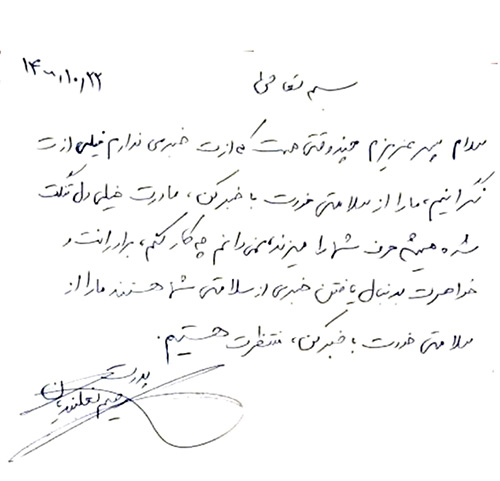 ۱۴۰۰/۱۰/۲۲
بسمه تعالی
سلام پسر عزیزم چند وقتی هست که ازت خبری ندارم خیلی ازت
نگرانیم، ما را از سلامتی خودت با خبر کن، مادرت خیلی دل تنگت
شده همیشه حرف شما را میزند، نمی دانم چه کار کنم، برادرانت و
خواهرت بدنبال یافتن خبری از سلامتی شما هستند ما را از
سلامتی خودت با خبر کن، منتظرت هستیم.
پدرت